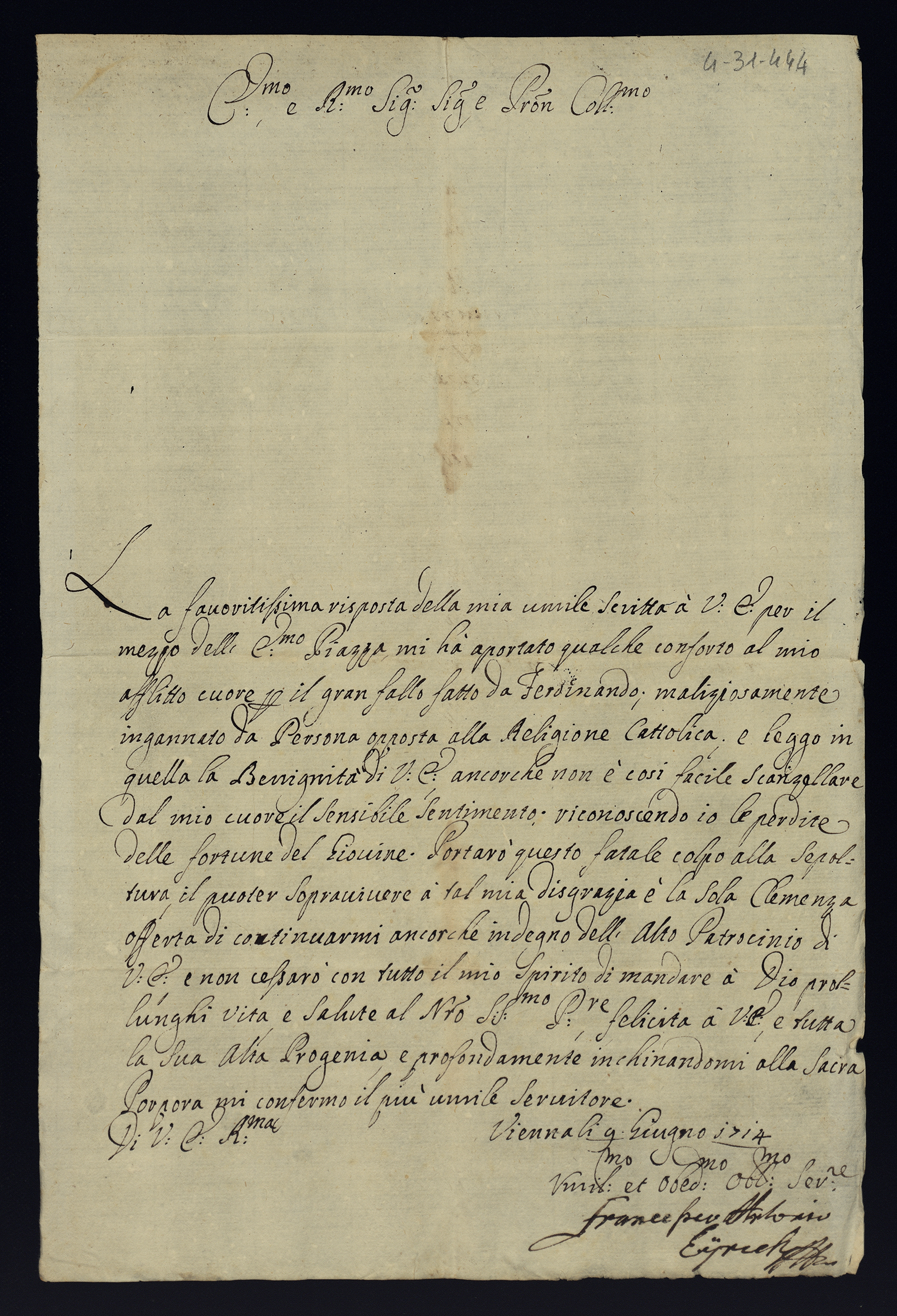 4-31-444
E:mo e R:mo Sig:r Sig:e Pron Coll:mo
La fauoritissima risposta della mia umile scritta à V: E: per il
mezzo dell' E:mo Piazza mi hà aportato qualche conforto al mio
afflitto cuore il gran fallo fatto da Ferdinando; maliziosamente
ingannato da Persona opposta alla Religione Cattolica. e leggo in
quella la Benignità di V: E: ancorche non è cosi facile scanzellare
dal mio cuore il sensibile sentimento. riconoscendo io le perdite
delle fortune del Giouine. Portarò questo fatale colpo alla sepol-
tura, il puoter soprauiuere à tal mia disgrazia è la sola Clemenza
offerta di continuarmi ancorche indegno dell' Alto Patrocinio di
V: E: e non cessarò con tutto il mio spirito di mandare à Dio prol-
lunghi vita, e salute al Nro SS:mo P:re, felicita à V: E:, e tutta
la sua Alta Progenia e profondamente inchinandomi alla Sacra
Porpora mi confermo il più umile seruitore.
Di V: E: R:ma Vienna li 9 Giugno 1714
Vmil:mo et Obed:mo Obl:mo Ser:re
Francesco Antonio